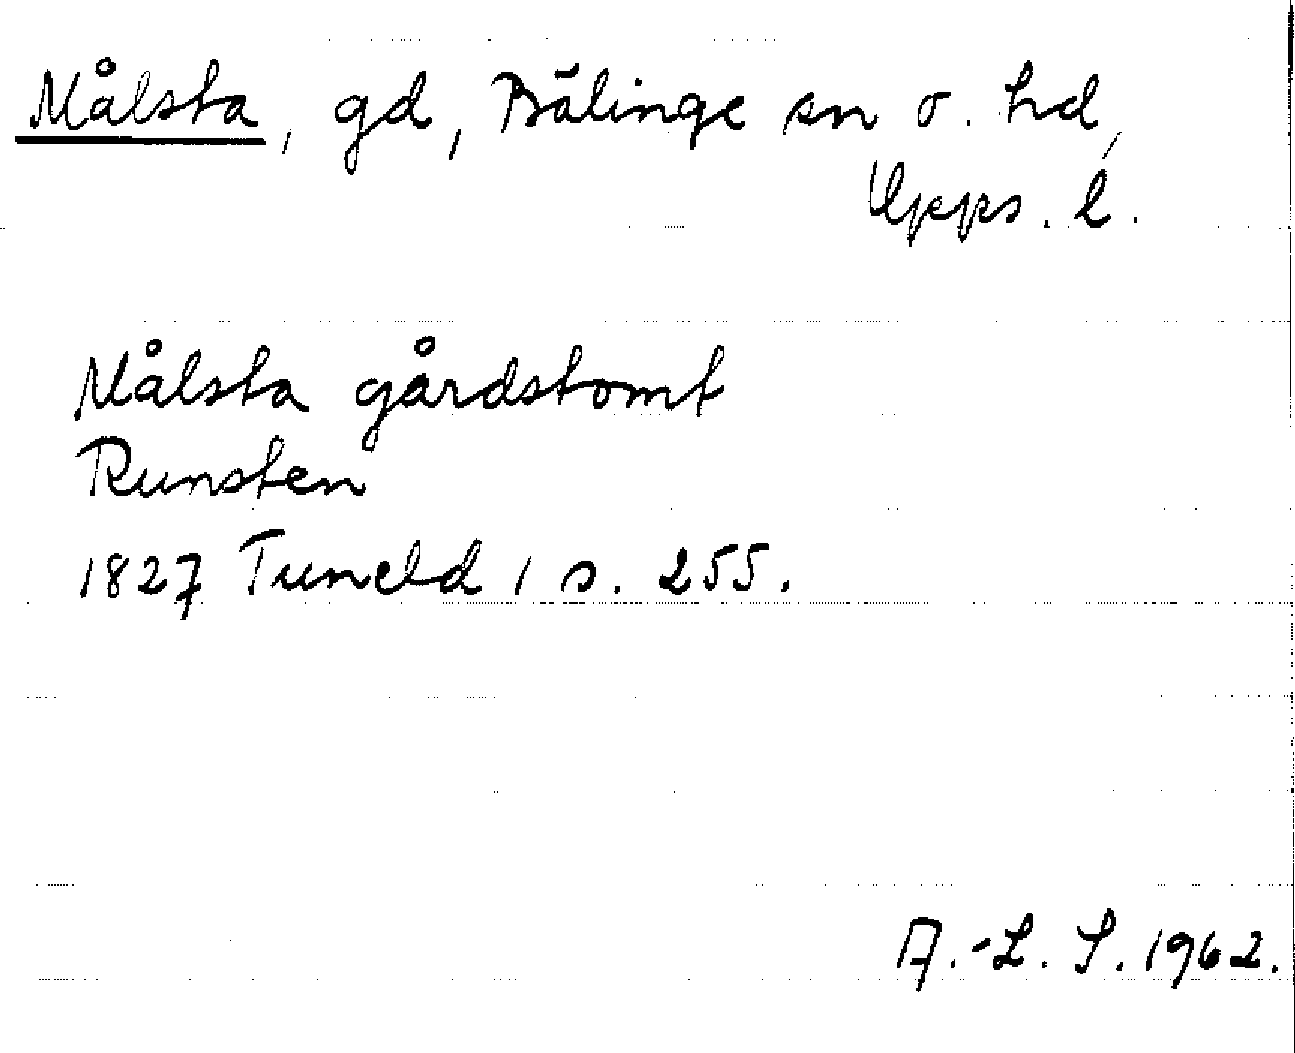 Målsta, gd, Bälinge sn o. hd,
Upps. l.
Målsta gårdstomt
Runsten
1827 Tuneld 1 s. 255.
A.-L. S. 1962.